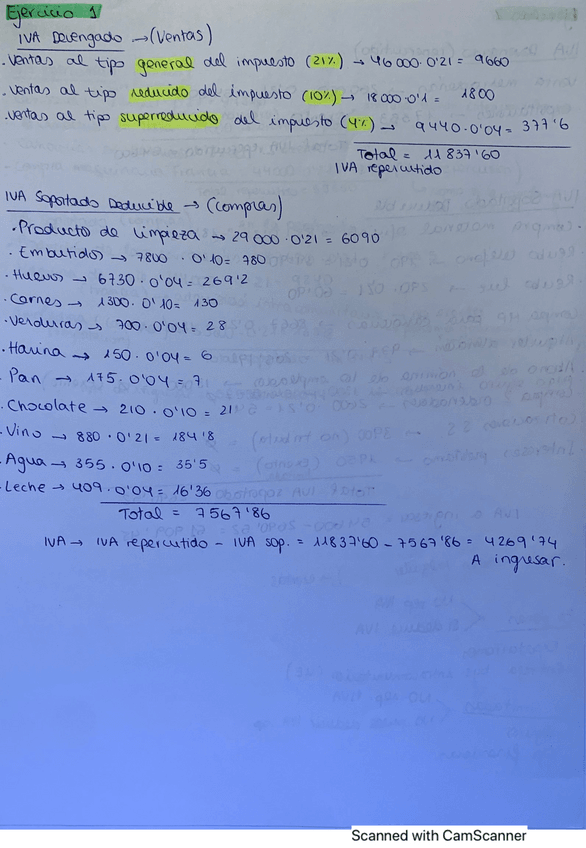 Ejercicio 1
IVA Devengado → (Ventas)
. Ventas al tipo general del impuesto (21%) → 46000·0'21 = 9660
. Ventas al tipo reducido del impuesto (10%) → 18000·0'1 = 1800
. Ventas al tipo superreducido del impuesto (4%) → 9440·0'04 = 377'6
Total = 11837'60
IVA repercutido
IVA Soportado Deducible → (compras)
· Producto de limpieza → 29000·0'21 = 6090
· Embutidos → 7800·0'10 = 780
· Huevos → 6730·0'04 = 269'2
· Carnes → 1300·0'10 = 130
· Verduras → 700·0'04 = 28
· Harina → 150·0'04 = 6
· Pan → 175·0'04 = 7
· Chocolate → 210·0'10 = 21
· Vino → 880·0'21 = 184'8
· Agua → 355·0'10 = 35'5
· Leche → 409·0'04 = 16'36
Total = 7567'86
IVA → IVA repercutido - IVA sop. = 11837'60 - 7567'86 = 4269'74
A ingresar.
Scanned with CamScanner